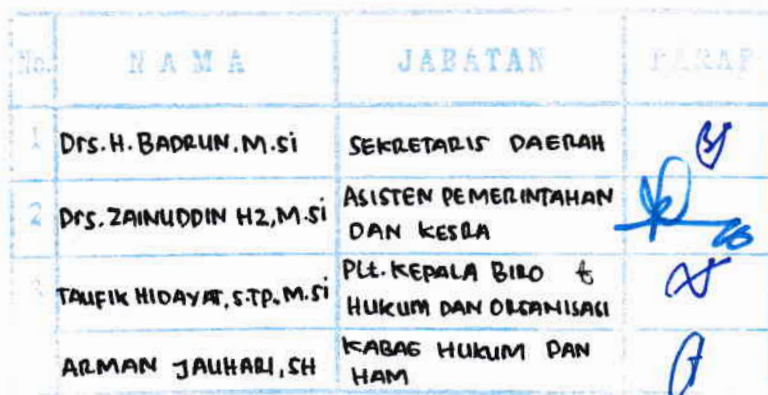 No. NAMA JABATAN PARAF
1 Drs. H. BADRUN, M.Si SEKRETARIS DAERAH
2 Drs. ZAINUDDIN HZ, M.Si ASISTEN PEMERINTAHAN
DAN KESRA
3 TAUFIK HIDAYAT, S.TP., M.Si Plt. KEPALA BIRO
HUKUM DAN ORGANISASI
ARMAN JAUHARI, SH KABAG HUKUM DAN
HAM